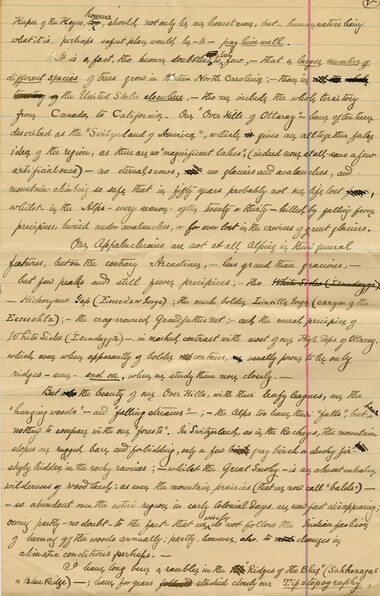 Keeper of the Keyes, however should not only be an honest man, but human nature being
what it is perhaps safest plan would be to pay him well.
It is a fact, tho known doubtless to but few, that a larger number of
different species of trees grow in Western North Carolina; than in
of the United States elsewhere, tho we include the whole territory
from Canada, to California. Our "Over Hills of Ottaray" have often been
described as the "Switzerland of America", which gives an altogether false
idea of the region, as there are no "magnificent lakes", (indeed none at all, save a few
artificial ones) no eternal snows, no glaciers and avalanches, and
mountain climbing so safe, that in fifty years probably not one life lost
whilst in the Alps every season often twenty or thirty killed by falling from
precipices, buried under avalanches, or for ever lost in the crevices of great glaciers.
Our Appalachians are not at all Alpine in their general
features, but on the contrary Arcadian, less grand than gracious,
but few peaks and still fewer precipices; tho White Sides
Hickorynut Gap the much bolder Linville Gorge (canyon of the
Eseeohla); the crag-crowned Grandfather Mt; and the mural precipice of
White Sides in marked contrast with most of our High Tops of Ottaray,
which, even when apparently of bolder contour, usually prove to be only
ridges seen end on, when we study them more closely.
But the beauty of our Over Hills, with their leafy leagues, are the
"hanging woods" and "falling streams"; the Alps too have their "falls", but
nothing to compare with our "forests". In Switzerland, as in the Rockies, the mountain
slopes are rugged, bare and forbidding, only a few gray birch or dusky fir
shyly hidden in the rocky ravines; whilst the Great Smoky is an almost unbroken
wilderness of woodland; as even the mountain prairies (that we now call "balds")
so abundant over the entire region, in early Colonial Days are now fast disappearing;
owing partly no doubt to the fact that we wisely do not follow the Indian fashion
of burning off the woods annually; partly, however, also to changes in
climatic conditions perhaps.
I have long been a rambler in the "Ridges of the Blue" (Sakkonagas
or Blue Ridge) have for years studied closely our Tip-topography,